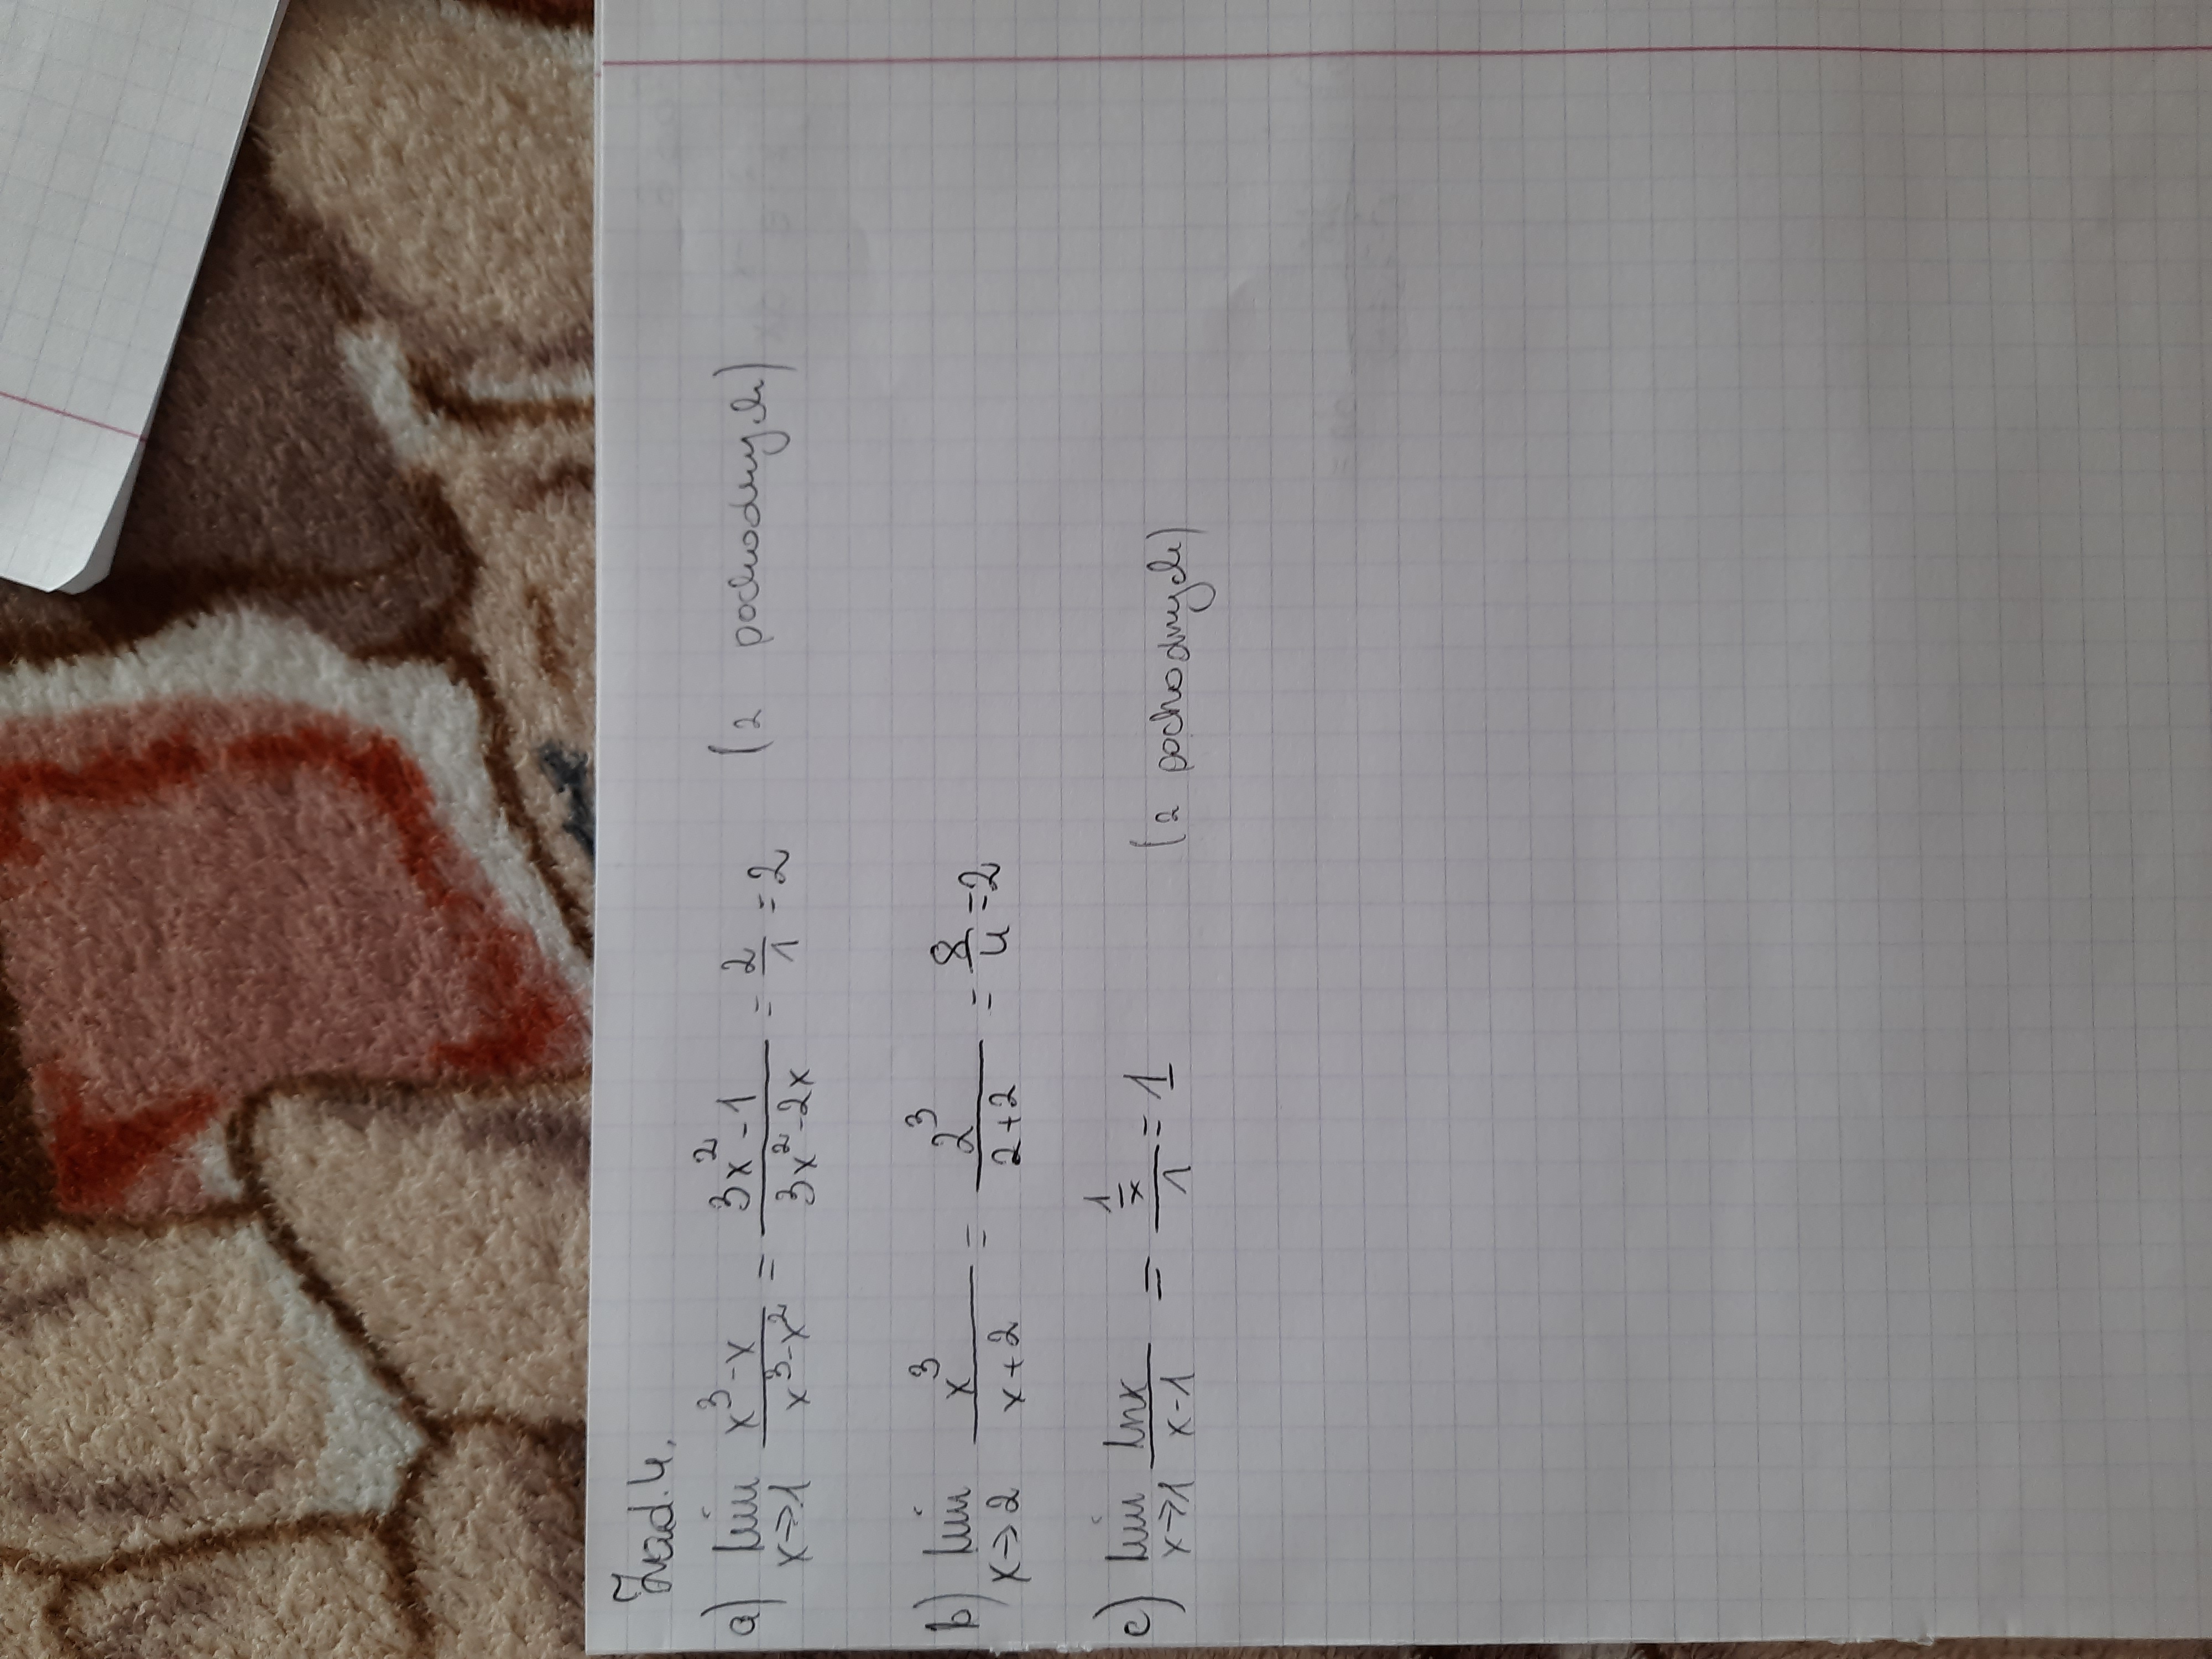 Zad. 4.
a) lim x→1 (x³-x)/(x³-x²) = (3x²-1)/(3x²-2x) = 2/1 = 2 (z pochodnych)
b) lim x→2 x³/(x+2) = 2³/(2+2) = 8/4 = 2
c) lim x→1 lnx/(x-1) = (1/x)/1 = 1 (z pochodnych)